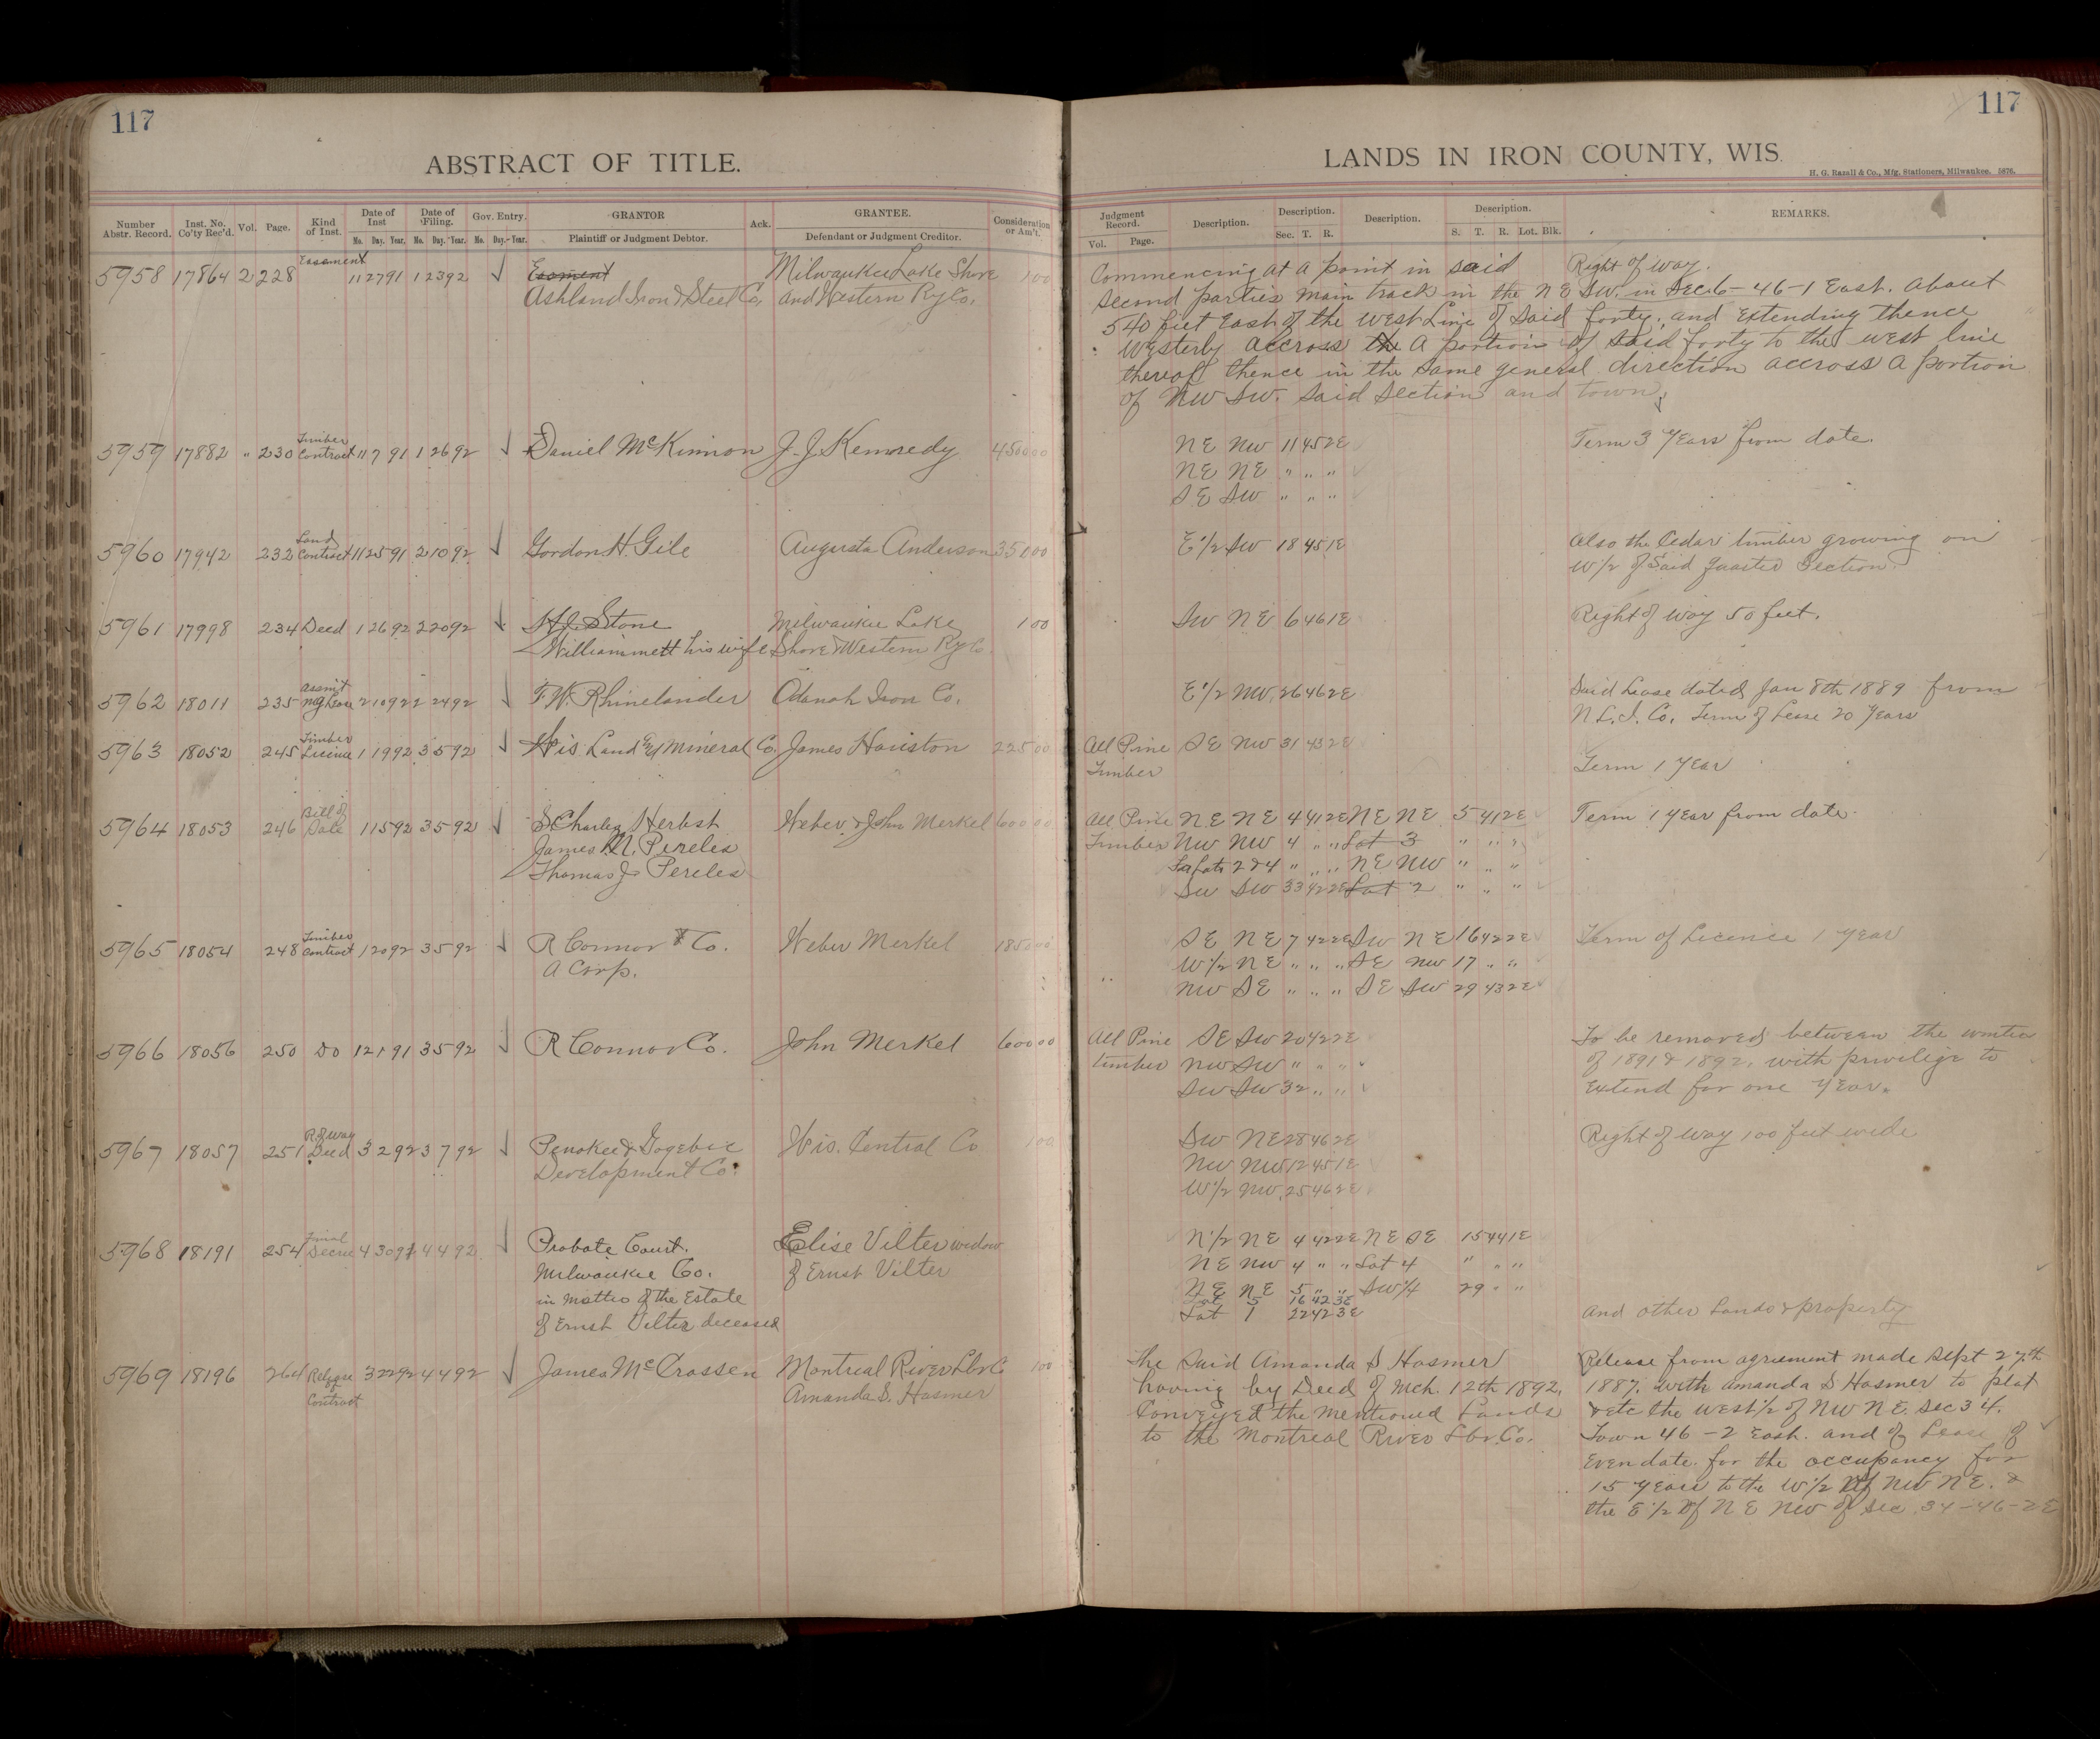 117
ABSTRACT OF TITLE.
Number Abstr. Record. Inst. No. Co'ty Rec'd. Vol. Page. Kind of Inst. Date of Inst Mo. Day. Year. Date of Filing. Mo. Day. Year. Gov. Entry. Mo. Day. Year. GRANTOR Plaintiff or Judgment Debtor. Ack. GRANTEE. Defendant or Judgment Creditor. Consideration or Am't.
5958 17864 2 228 Easement 11 27 91 1 23 92 Easment Milwaukee Lake Shore 1 00
Ashland Iron & Steel Co. and Western Ry Co.
5959 17882 " 230 Timber Contract 11 7 91 1 26 92 Daniel McKinnon J. J. Kennedy 450 00
5960 17942 232 Land Contract 11 25 91 2 10 92 Gordon H. Gile Augusta Anderson 350 00
5961 17998 234 Deed 1 26 92 2 20 92 H. J. Stone Milwaukie Lake 1 00
Williammett his wife Shore & Western Ry Co.
5962 18011 235 Assmt Mg Lease 2 10 92 2 24 92 F. W. Rhinelander Odanah Iron Co.
5963 18052 245 Timber License 1 19 92 3 5 92 Wis. Land & Mineral Co. James Houston 225 00
5964 18053 246 Bill of Sale 1 15 92 3 5 92 S Charley Herbst Weber & John Merkel 600 00
James M. Pereles
Thomas J. Pereles
5965 18054 248 Timber Contract 1 20 92 3 5 92 R Connor & Co. Weber Merkel 185 00
A Corp.
5966 18056 250 Do 12 1 91 3 5 92 R Connor Co. John Merkel 600 00
5967 18057 251 R of way Deed 3 2 92 3 7 92 Penokee & Gogebic Wis. Central Co 1 00
Development Co.
5968 18191 254 Final Decree 4 30 91 4 4 92 Probate Court. Elise Vilter widow
Milwaukie Co. of Ernst Vilter
in matter of the Estate
of Ernst Vilter deceased
5969 18196 264 Release of Contract 3 22 92 4 4 92 James McCrossen Montreal River Lbr Co 1 00
Amanda S. Hosmer
117
LANDS IN IRON COUNTY, WIS.
H. G. Razall & Co., Mfg. Stationers, Milwaukee. 5876.
Judgment Record. Vol. Page. Description. Description. Sec. T. R. Description. Description. S. T. R. Lot. Blk. REMARKS.
Commencing at a point in said Right of way.
second parties main track in the NE SW. in Sec. 6-46-1 East. About
540 feet East of the West Line of Said forty, and Extending thence
Westerly accross th A portion of said forty to the west line
thereof thence in the same general direction accross A portion
of NW SW. Said Section and town.
NE NW 11 45 2E Term 3 Years from date.
NE NE " " "
SE SW " " "
E 1/2 SW 18 45 1E Also the Cedar timber growing on
W 1/2 of Said quarter Section.
SW NE 6 46 1E Right of Way 50 feet.
E 1/2 NW 26 46 2E Said Lease dated Jan 8th 1889 from
N L. I. Co. Term of Lease 20 Years
All Pine SE NW 31 43 2E
Timber Term 1 Year
All Pine NE NE 4 41 2E NE NE 5 41 2E Term 1 year from date.
Timber NW NW 4 " " Lot 3 " " "
Lots 2 & 4 " " " NE NW " " "
SW SW 33 42 2E Lot 2 " " "
SE NE 7 42 2E SW NE 16 42 2E Term of Licence 1 Year
W 1/2 NE " " " SE NW 17 " "
" NW SE " " " SE SW 29 43 2E
All Pine SE SW 20 42 2E To be removed between the winter
timber NW SW " " " of 1891 & 1892, with privilige to
SW SW 32 " " Extend for one Year.
SW NE 28 46 2E Right of Way 100 feet wide
NW NW 12 45 1E
W 1/2 NW 25 46 2E
N 1/2 NE 4 42 2E NE SE 15 44 1E
NE NW 4 " " Lot 4 " " "
NE NE 5 " " SW 1/4 29 " "
Lot 5 16 42 3E
Lot 1 22 42 3E And other Lands & property
The said Amanda S Hosmer Release from agreement made Sept 27th
having by Deed of Mch. 12th 1892, 1887, with Amanda S Hosmer to plat
Conveyed the mentioned Lands & etc the west 1/2 of NW NE. Sec 34.
to the Montreal River Lbr. Co. Town 46-2 East. and of Lease of
Even date for the occupancy for
15 years to the W 1/2 of NW NE. &
the E 1/2 of NE NW of Sec 34-46-2E